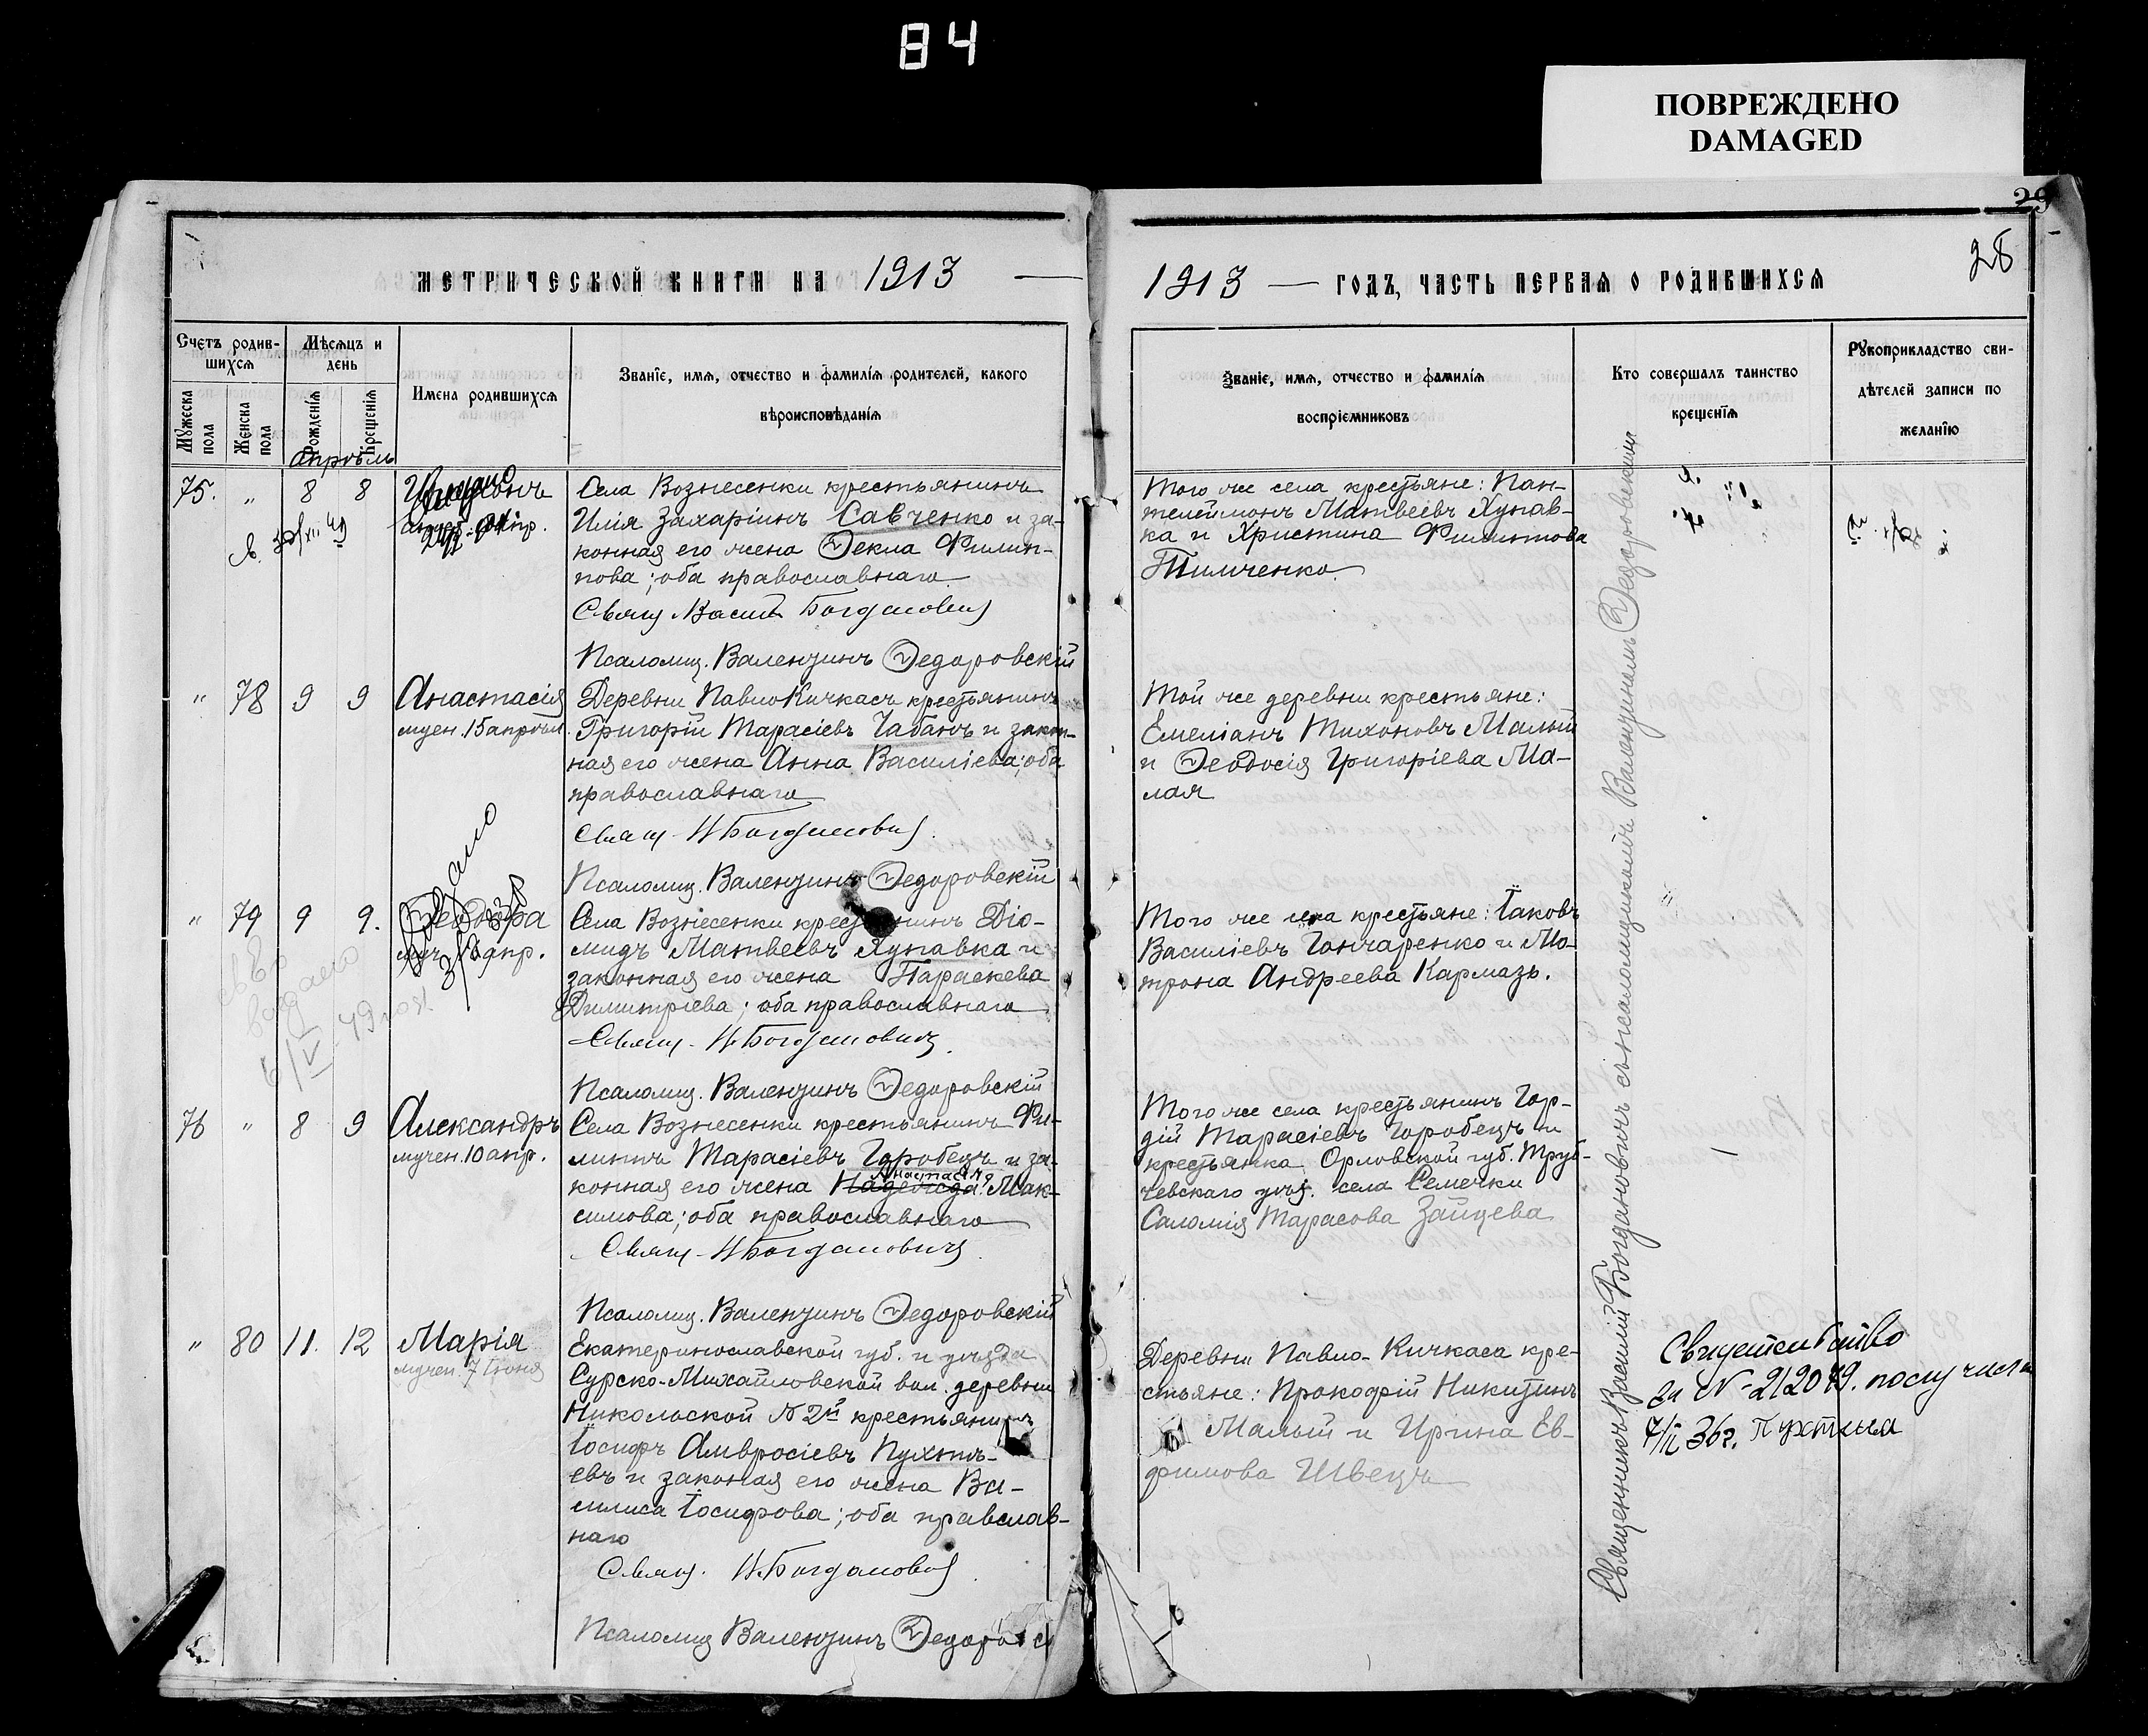 84
ПОВРЕЖДЕНО
DAMAGED
29
28
МЕТРИЧЕСКОЙ КНИГИ НА 1913
1913 — ГОДЪ, ЧАСТЬ ПЕРВАЯ О РОДИВШИХСЯ
Счетъ родив-
шихся
Мужеска пола
Женска пола
Мѣсяцъ и
день
Рожденія
Крещенія
Имена родившихся
Званіе, имя, отчество и фамилія родителей, какого
вѣроисповѣданія
Званіе, имя, отчество и фамилія
воспріемниковъ
Кто совершалъ таинство
крещенія
Рукоприкладство сви-
дѣтелей записи по
желанію
апрѣль
75. „ 8 8
Села Вознесенки крестьянинъ
Илія Захаріинъ Савченко и за-
конная его жена Ѳекла Филип-
пова; оба православнаго
Свящ Васил Богдановичъ
Псаломщ. Валентинъ Ѳедоровскій
Того же села крестьяне: Пан-
телеимонъ Матвеевъ Хупав-
ка и Христина Филиппова
Тимченко
„ 78 9 9 Анастасія
мучен. 15 апрѣля.
Деревни ПавлоКичкасъ крестьянинъ
Григорій Тарасіевъ Чабанъ и закон-
ная его жена Анна Василіева; оба
православнаго
Свящ. В Богдановичъ
Псаломщ. Валентинъ Ѳедоровскій
Той же деревни крестьяне:
Емеліанъ Тихоновъ Малый
и Ѳеодосія Григоріева Ма-
лая
„ 79 9 9. Ѳеодора
апр.
выдано
Села Вознесенки крестьянинъ Діо-
мидъ Матвеевъ Хупавка и
законная его жена Параскева
Димитріева; оба православнаго
Свящ. В Богдановичъ
Псаломщ. Валентинъ Ѳедоровскій
Того же села крестьяне: Іаковъ
Василіевъ Гончаренко и Мо-
трона Андреева Кармазь.
76 „ 8 9 Александръ
мучен. 10 апр.
Села Вознесенки крестьянинъ Фи-
липпъ Тарасіевъ Горобецъ и за-
Анастасія
конная его жена Надежда Мак-
симова; оба православнаго
Свящ. В Богдановичъ
Псаломщ. Валентинъ Ѳедоровскій
Того же села крестьянинъ Гор-
дій Тарасіевъ Горобецъ и
крестьянка Орловской губ. Труб-
чевскаго уѣз. села Семечки
Саломія Тарасова Зайцева
„ 80 11. 12 Марія
мучен. 7 Іюня
Екатеринославской губ. и уѣзда
Сурско-Михайловской вол. деревни
Никольской № 2й крестьянинъ
Іосифъ Амвросіевъ Пухтѣ-
евъ и законая его жена Ва-
силиса Іосифова; оба правслав-
наго
Свящ. В. Богдановичъ
Псаломщ Валентинъ Ѳедоровск
Деревни Павло-Кичкаса кре-
стьяне: Прокофій Никитинъ
Малый и Ирина Ев-
фимова Швецъ
Священникъ Василій Богдановичъ съ псаломщикомъ Валентиномъ Ѳедоровскимъ
за № 212079. получила
7/II 36г.